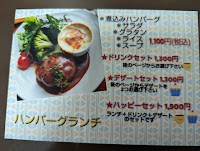 ★煮込みハンバーグ
★サラダ
★グラタン
★ライス
★スープ
1,100円(税込)
★ドリンクセット 1,300円
後のページからお選び下さい
★デザートセット 1,300円
後のページから
お選び下さい
★ハッピーセット 1,500円
ランチ+ドリンク+デザート
のセットです
ハンバーグランチ